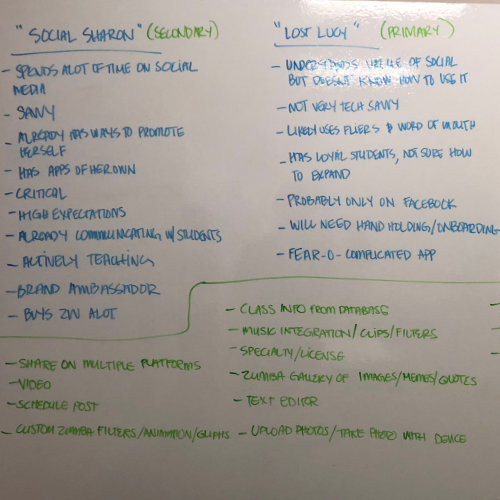 "SOCIAL SHARON" (SECONDARY)
- SPENDS ALOT OF TIME ON SOCIAL
MEDIA
- SAVVY
- ALREADY HAS WAYS TO PROMOTE
HERSELF
- HAS APPS OF HER OWN
- CRITICAL
- HIGH EXPECTATIONS
- ALREADY COMMUNICATING W/ STUDENTS
- ACTIVELY TEACHING
- BRAND AMBASSADOR
- BUYS ZW ALOT
"LOST LUCY" (PRIMARY)
- UNDERSTANDS VALUE OF SOCIAL
BUT DOESN'T KNOW HOW TO USE IT
- NOT VERY TECH SAVVY
- LIKELY USES FLIERS & WORD OF MOUTH
- HAS LOYAL STUDENTS, NOT SURE HOW
TO EXPAND
- PROBABLY ONLY ON FACEBOOK
- WILL NEED HAND HOLDING/ONBOARDING
- FEAR-O-COMPLICATED APP
- SHARE ON MULTIPLE PLATFORMS
- VIDEO
- SCHEDULE POST
- CUSTOM ZUMBA FILTERS/ANIMATION/GLIPHS
- CLASS INFO FROM DATABASE
- MUSIC INTEGRATION/CLIPS/FILTERS
- SPECIALTY/LICENSE
- ZUMBA GALLERY OF IMAGES/MEMES/QUOTES
- TEXT EDITOR
- UPLOAD PHOTOS/TAKE PHOTO WITH DEVICE